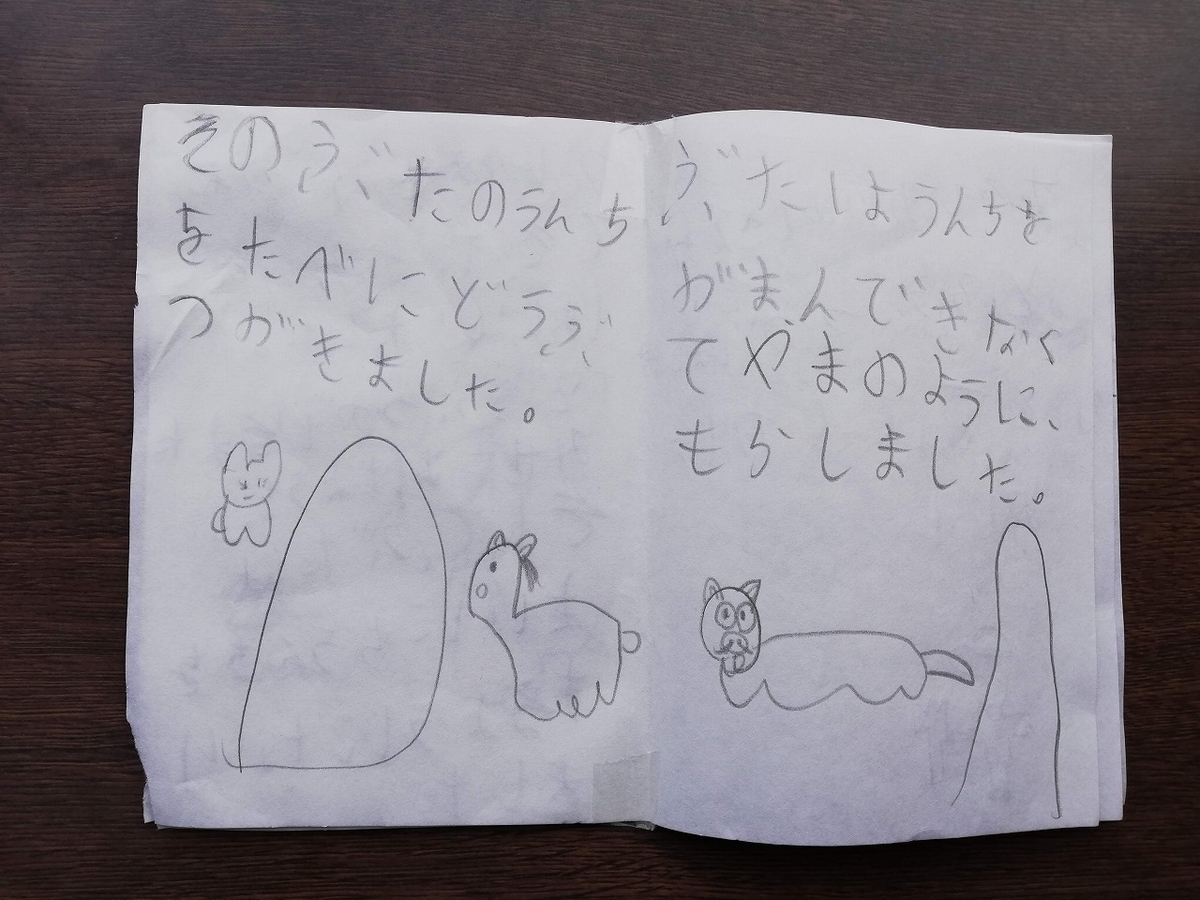 ぶたはうんちを
がまんできなく
てやまのように、
もらしました。
そのぶたのうんち
をたべにどうぶ
つがきました。